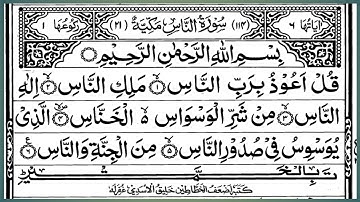 اٰيَاتُهَا ٦ (١١٤) سُوْرَةُ النَّاسِ مَكِّيَّةٌ (٢١) رُكُوْعُهَا ١
بِسْمِ اللّٰهِ الرَّحْمٰنِ الرَّحِيْمِ
قُلْ اَعُوْذُ بِرَبِّ النَّاسِ ۝١ مَلِكِ النَّاسِ ۝٢ اِلٰهِ
النَّاسِ ۝٣ مِنْ شَرِّ الْوَسْوَاسِ ەۙ الْخَنَّاسِ ۝٤ الَّذِيْ
يُوَسْوِسُ فِيْ صُدُوْرِ النَّاسِ ۝٥ مِنَ الْجِنَّةِ وَالنَّاسِ ۝٦